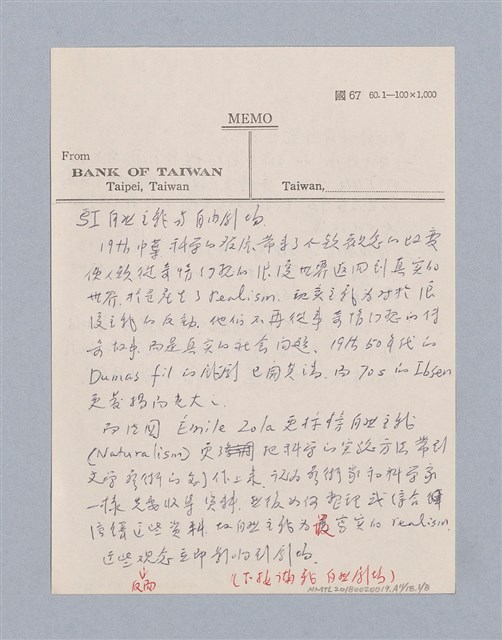 國 67 60.1—100×1,000
MEMO
From
BANK OF TAIWAN
Taipei, Taiwan
Taiwan,
§I 自然主義与自由劇場
19th 中葉 科学的發展 帶來了人類觀念的改變
使人類從幻想的浪漫世界返回到真實的
世界. 於是產生了 realism. 現實主義為對於浪
漫主義的反動. 他们不再從事幻想的传
奇故事, 而是真实的社会问題. 19th 50年代的
Dumas fil 的戲劇 已開其端, 而 70s 的 Ibsen
更發揚而光大之.
而法國 Émile Zola 更标榜自然主義
(Naturalism) 更 把科学的实验方法帶到
文学藝術的創作上來. 認為藝術家和科学家
一樣 先要收集資料, 然後为何整理或綜合
這些資料. 故自然主義為最寫实的 realism.
這些观念立即影响到劇場.
反而
(下接講義 自由劇場)
NMTL20180020019.A4/18.1/8